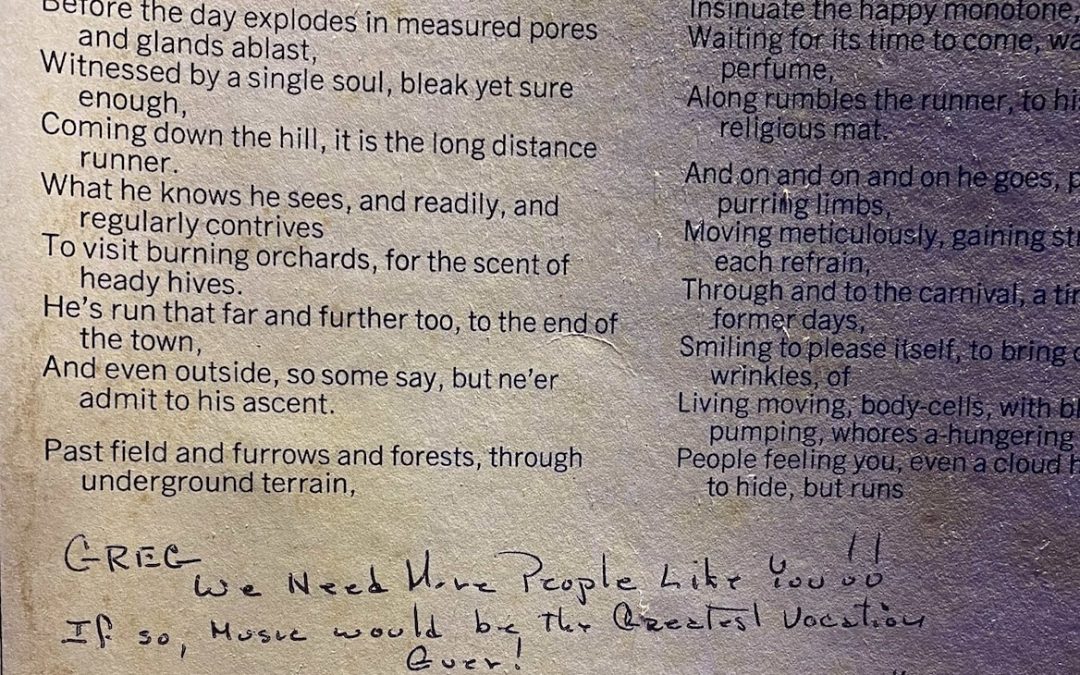 Before the day explodes in measured pores
and glands ablast,
Witnessed by a single soul, bleak yet sure
enough,
Coming down the hill, it is the long distance
runner.
What he knows he sees, and readily, and
regularly contrives
To visit burning orchards, for the scent of
heady hives.
He's run that far and further too, to the end of
the town,
And even outside, so some say, but ne'er
admit to his ascent.
Past field and furrows and forests, through
underground terrain,
Insinuate the happy monotone,
Waiting for its time to come,
perfume,
Along rumbles the runner, to
religious mat.
And on and on and on he goes,
purring limbs,
Moving meticulously, gaining
each refrain,
Through and to the carnival, a
former days,
Smiling to please itself, to bring
wrinkles, of
Living moving, body-cells, with
pumping, whores a-hungering
People feeling you, even a cloud
to hide, but runs
GREG
We Need More People Like You!!
If so, Music would be the Greatest Vocation
Ever!